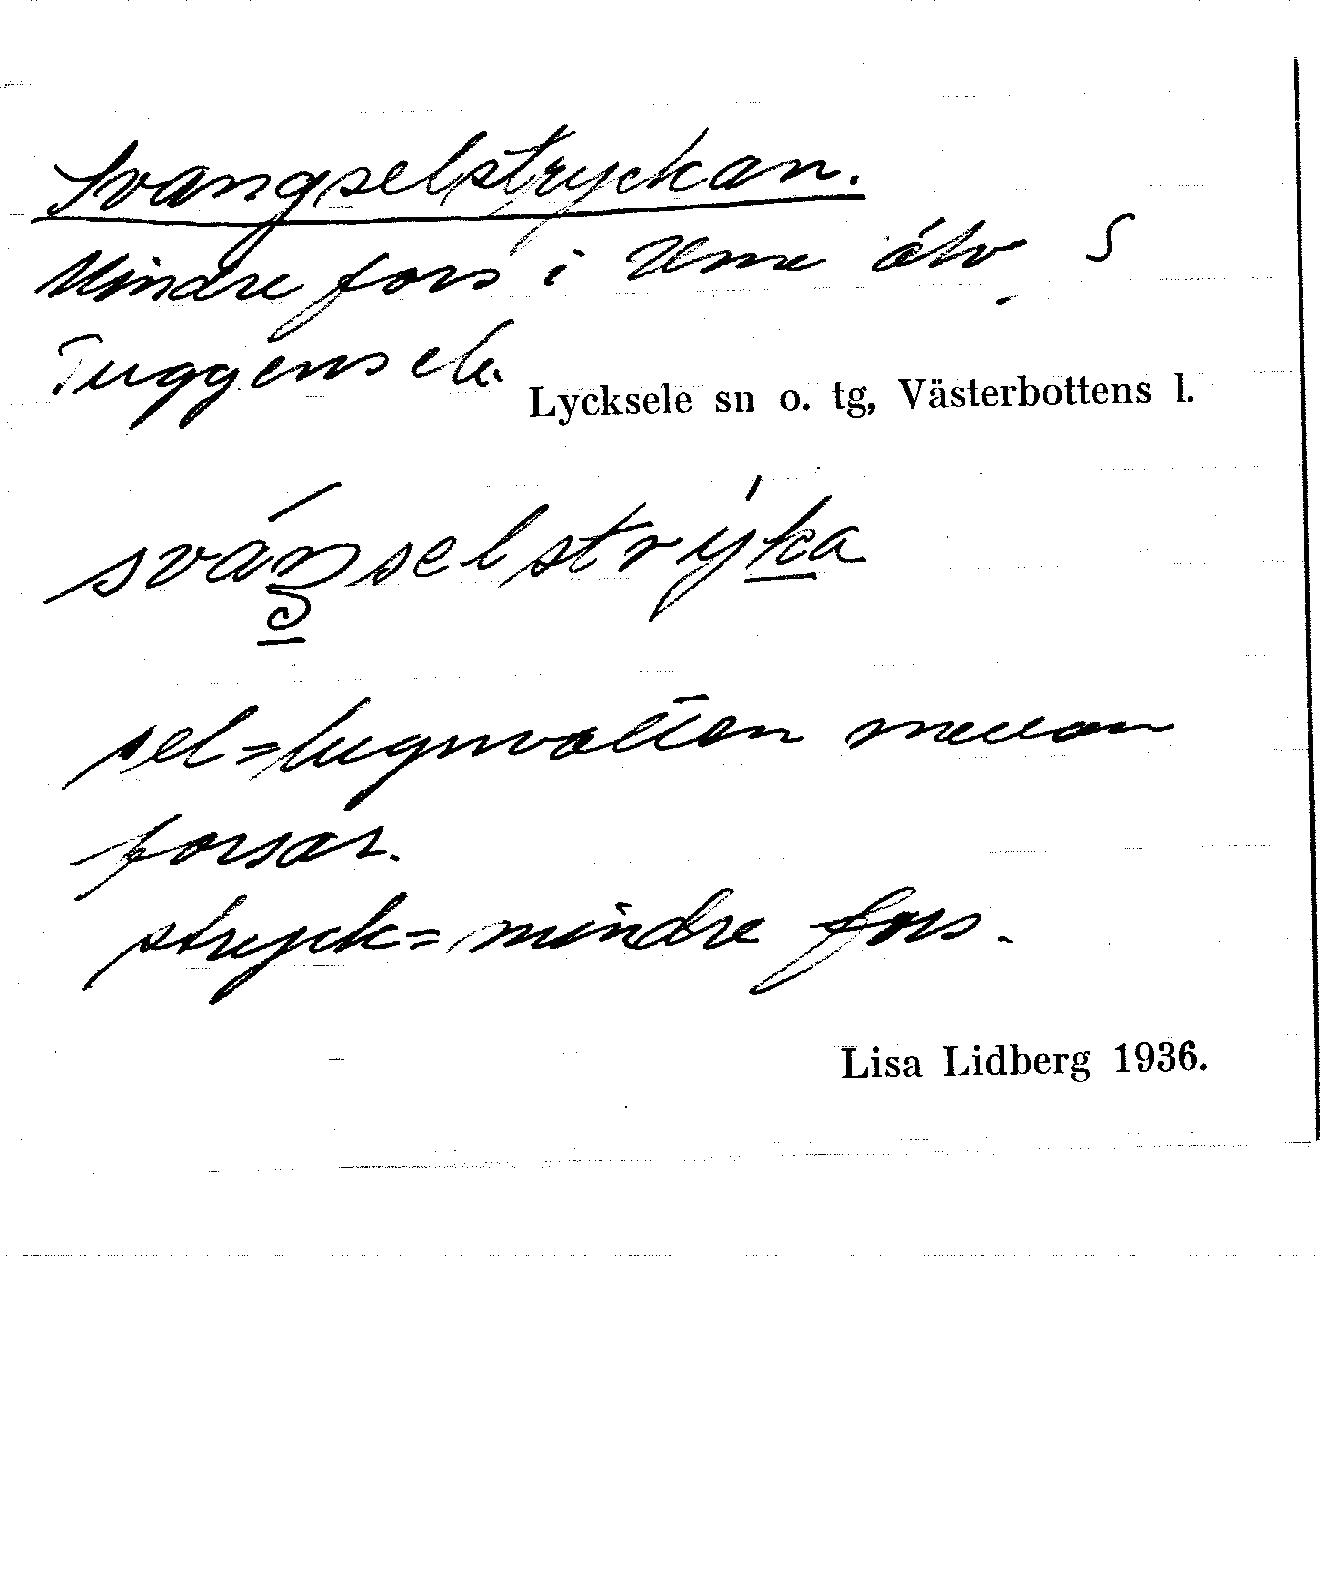 Svangselstryckan.
Mindre fors i Ume älv, S
Tuggensele.
Lycksele sn o. tg, Västerbottens l.
sváŋselstrýka
sel=lugnvatten mellan
forsar.
stryck=mindre fors.
Lisa Lidberg 1936.